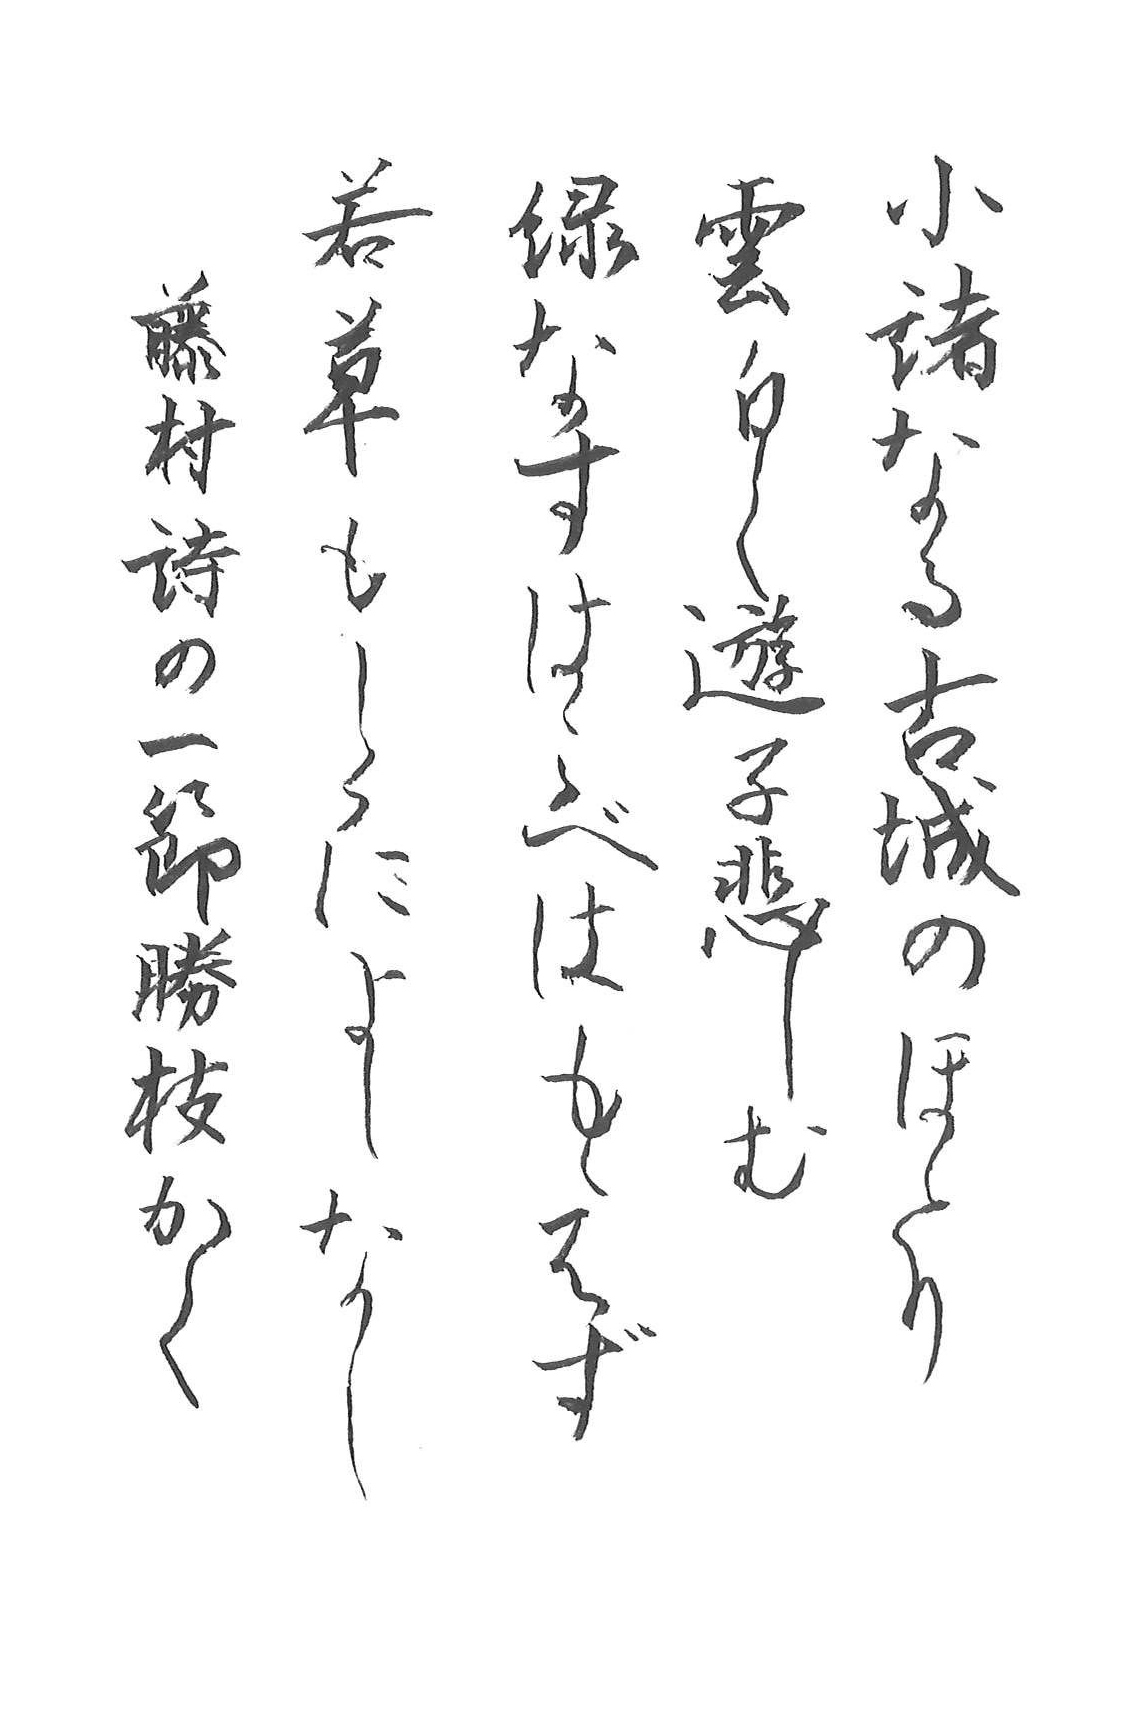 小諸なる古城のほとり
雲白く遊子悲しむ
緑なすはこべはもえず
若草もしくによしなし
藤村詩の一節勝枝かく